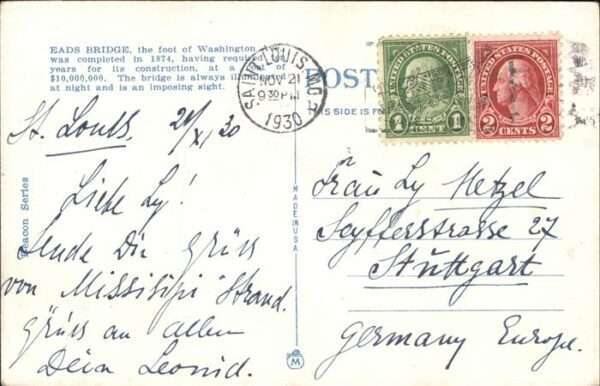 EADS BRIDGE, the foot of Washington
was completed in 1874, having required
years for its construction, at a cost of
$10,000,000. The bridge is always illuminated
at night and is an imposing sight.
SAINT LOUIS, MO.
NOV 21
9 30 PM
1930
POST
THIS SIDE IS F
UNITED STATES POSTAGE
1 CENT 1
UNITED STATES POSTAGE
2 CENTS 2
St. Louis 21/XI 30
Liebe Ly!
Sende Dir Grüss
von Missisipi Strand.
Grüss an allen
Dein Leonid.
Beacon Series
MADE IN USA
M
Frau Ly Hetzel
Seyfferstrasse 27
Stuttgart
Germany Europe.